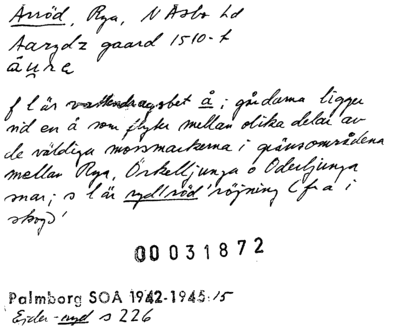 Årröd, Rya, N Åsbo hd
Aarydz gaard 1510-t
f l är vattendragsbet å; gårdarna ligger
vid en å som flyter mellan olika delar av
de väldiga mossmarkerna i gränsområdena
mellan Rya, Örkelljunga o Oderljunga
snar; s l är ryd/röd 'röjning (fr a i
skog)'
00031872
Palmborg SOA 1942-1945:15
Ejder -ryd s 226